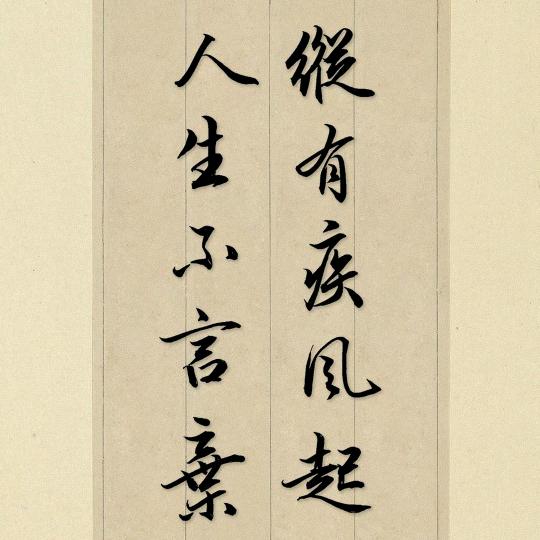 縱有疾風起
人生不言棄